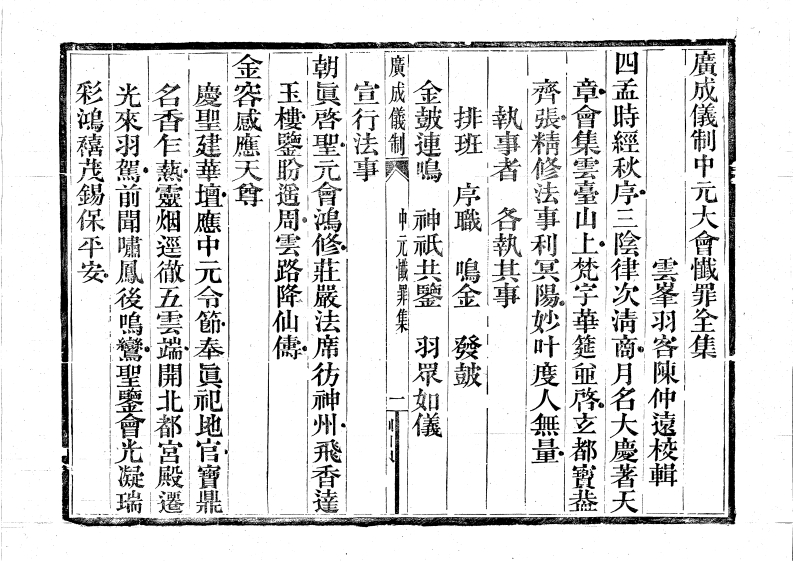 廣成儀制中元大會懺罪全集
雲峯羽客陳仲遠校輯
四孟時經秋序三陰律次清商月名大慶著天
章會集雲臺山上梵宇華筵並啓玄都寶葢
齊張精修法事利冥陽妙叶度人無量
執事者 各執其事
排班 序職 鳴金 發鼓
金鼓連鳴 神祇共鑒 羽眾如儀
廣成儀制 中元懺罪集 一
宣行法事
朝眞啓聖元會鴻修莊嚴法席彷神州飛香達
玉樓鑒盼遥周雲路降仙儔
金容感應天尊
慶聖建華壇應中元令節奉眞祀地官寶鼎
名香乍爇靈烟逕徹五雲端開北都宮殿遷
光來羽駕前聞嘯鳳後鳴鸞聖鑒會光凝瑞
彩鴻禧茂錫保平安